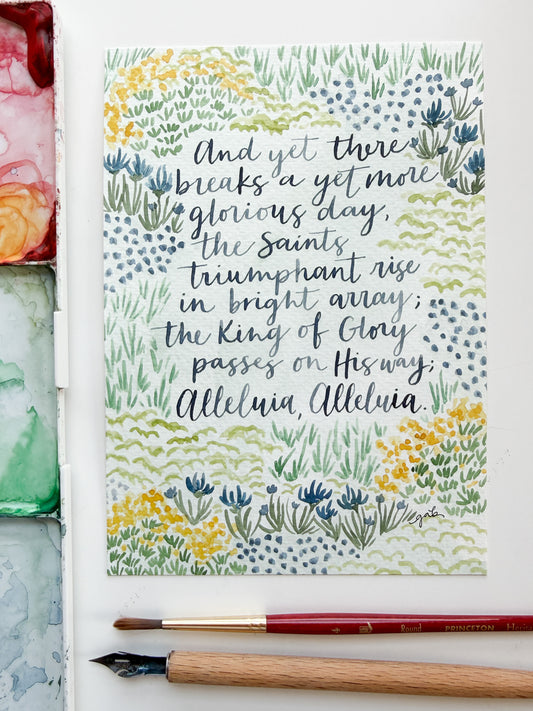 And yet there
breaks a yet more
glorious day,
the Saints
triumphant rise
in bright array;
the King of Glory
passes on His way;
Alleluia, Alleluia.
4 Round PRINCETON